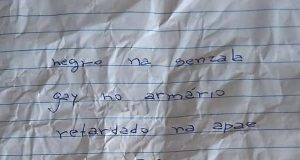 negro na senzala
gay no armário
retardado na apae